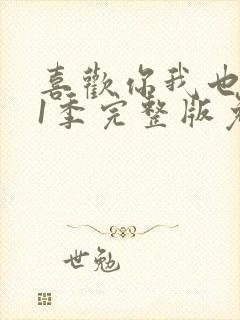 喜歡你我也
1季完整版免
世勉